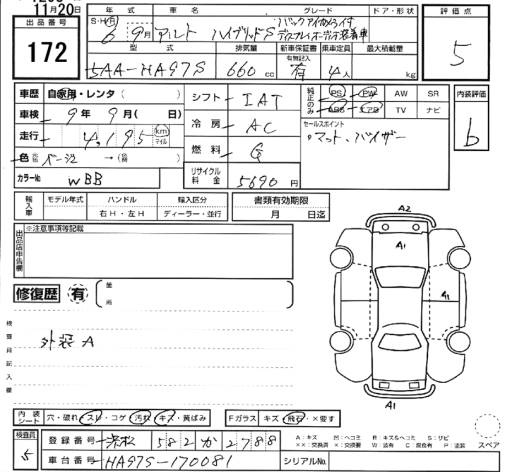 11月20日
出品番号
172
年式 車名 グレード ドア・形状
S・H・R 6年9月 アルト ハイブリッドS バックアイカメラ付ディスプレイオーディオ装着車
型式 排気量 新車保証書 乗車定員 最大積載量
有無記入
5AA-HA97S 660cc 有 4人 kg
評価点
5
車歴 自家用・レンタ( )
車検 9年9月(日)
走行 4,195 km マイル
色 元色 ベージュ → (替色 )
カラーNo WBB
シフト IAT
冷房 AC
燃料 G
リサイクル料金 5690円
純正のみ PS PW AW SR
ABS エアB TV ナビ
セールスポイント
・マット、バイザー
内装評価
b
輸入車 モデル年式 ハンドル 輸入区分
右H・左H ディーラー・並行
書類有効期限
月 日迄
出品店申告欄
※注意事項等記載
修復歴 有 箇所
検査員記入欄
外装A
A2
A1
A1
A1
内装シート 穴・破れ・スレ・コゲ・汚れ・キズ・黄ばみ
Fガラス キズ・飛石・×要す
検査員
5
登録番号 浜松 582か2788
車台番号 HA97S-170081
シリアルNo.
A:キズ E:ヘコミ B:キズ&ヘコミ S:サビ
××:交換済 X:交換要 W:補有 C:腐食有 P:塗装
スペア